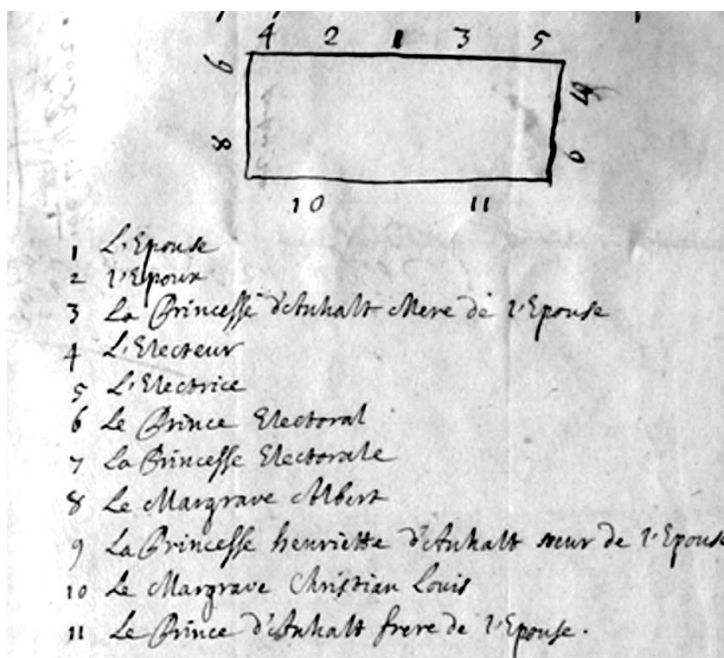 4 2 1 3 5
9 7
8 6
10 11
1 L'Epouse
2 l'Epoux
3 La Princesse d'Anhalt Mere de l'Epouse
4 L'Electeur
5 L'Electrice
6 Le Prince Electoral
7 La Princesse Electorale
8 Le Margrave Albert
9 La Princesse henriette d'Anhalt sœur de l'Epouse
10 Le Margrave Christian Louis
11 Le Prince d'Anhalt frere de l'Epouse.